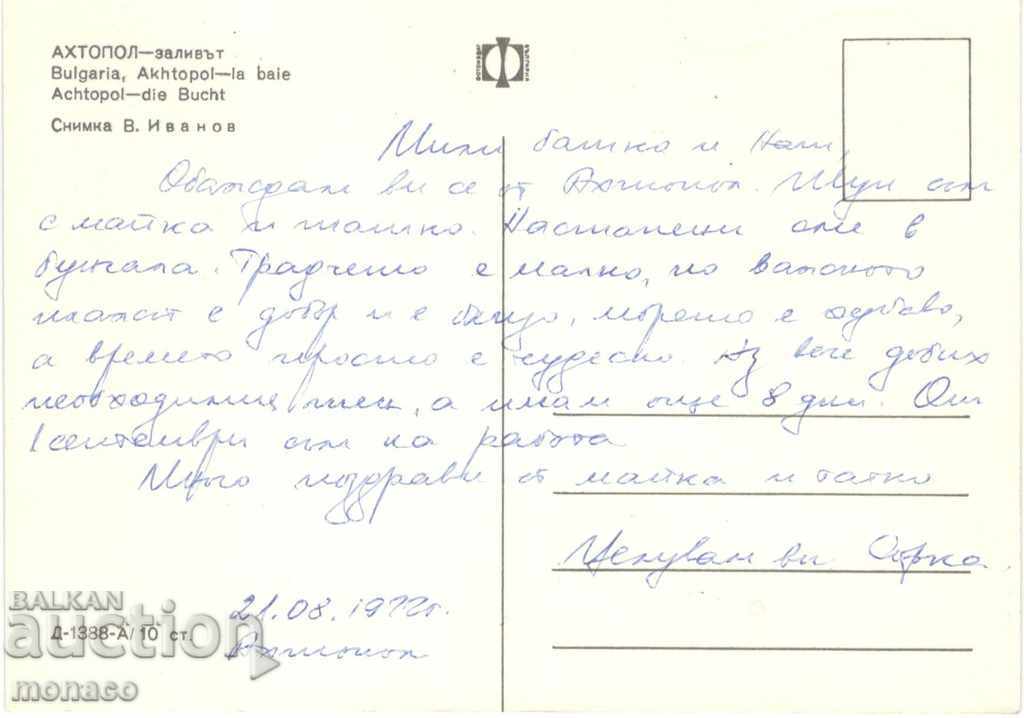 АХТОПОЛ—заливът
Bulgaria, Akhtopol—la baie
Achtopol—die Bucht
Снимка В. Иванов
ФОТОИЗДАТ БЪЛГАРИЯ
Мили батко и
Обаждам ви се от Ахтопол. Тук съм
с майка и татко. Настанени сме в
бунгала. Градчето е малко, но
плажът е добър и е близо, морето е хубаво,
а времето просто е чудесно. Аз вече добих
необходимия тен, а имам още 8 дни. От
1 септември съм на работа
Много поздрави от майка и татко
Целувам ви
21.08.1977г.
Ахтопол
Д-1388-А/10 ст.
BALKAN
auction
monaco